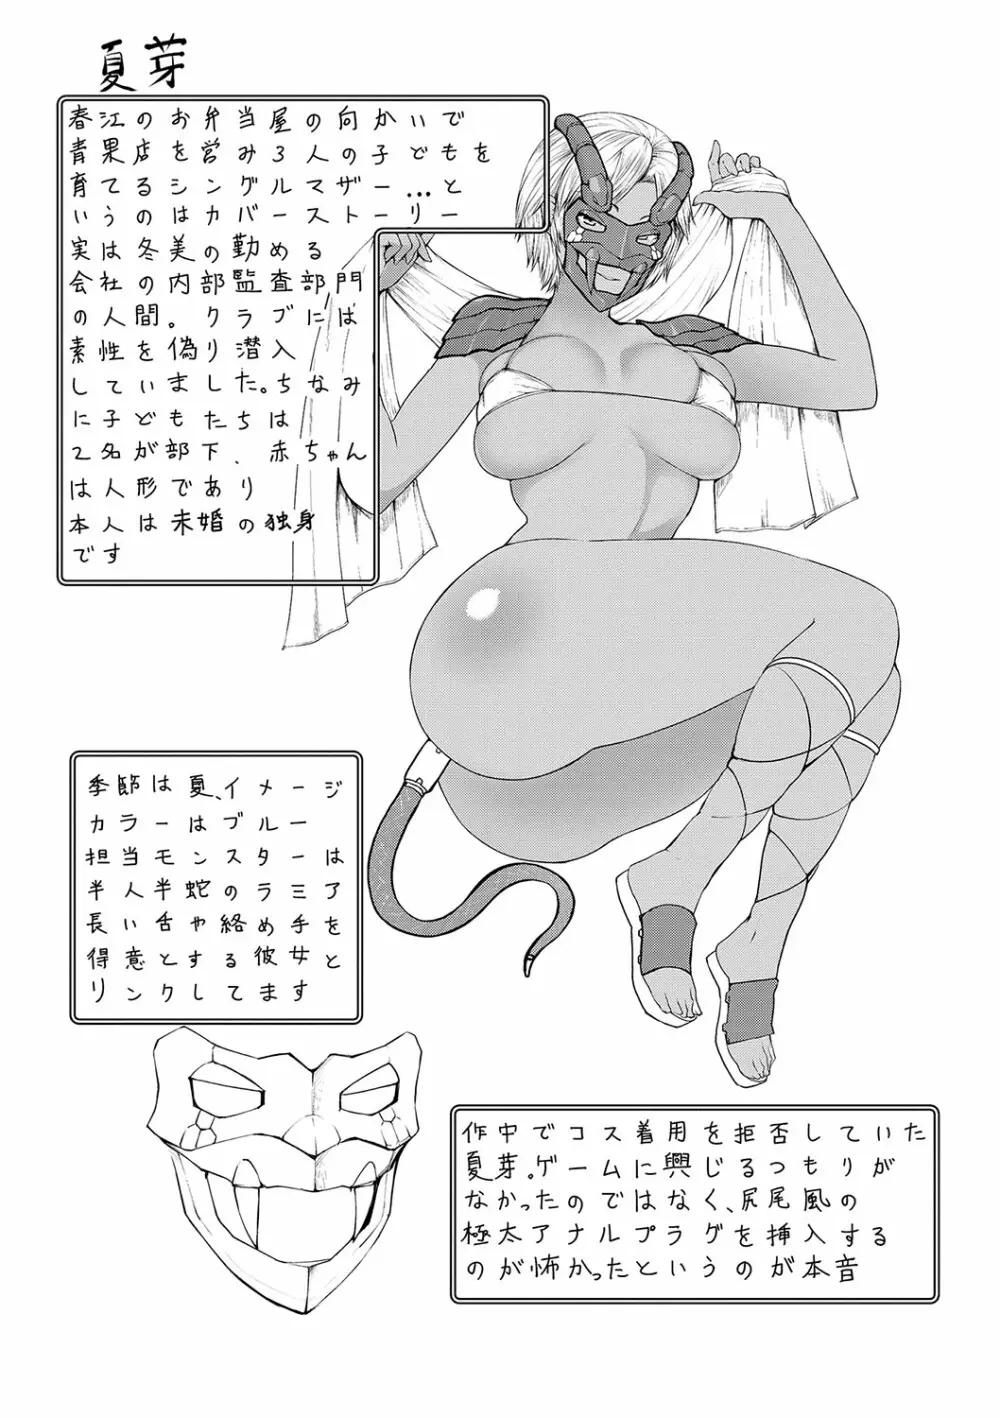 夏芽
春江のお弁当屋の向かいで
青果店を営み3人の子どもを
育てるシングルマザー…と
いうのはカバーストーリー
実は冬美の勤める
会社の内部監査部門
の人間。クラブには
素性を偽り潜入
していました。ちなみ
に子どもたちは
2名が部下、赤ちゃん
は人形であり
本人は未婚の独身
です
季節は夏、イメージ
カラーはブルー
担当モンスターは
半人半蛇のラミア
長い舌や絡め手を
得意とする彼女と
リンクしてます
作中でコス着用を拒否していた
夏芽。ゲームに興じるつもりが
なかったのではなく、尻尾風の
極太アナルプラグを挿入する
のが怖かったというのが本音